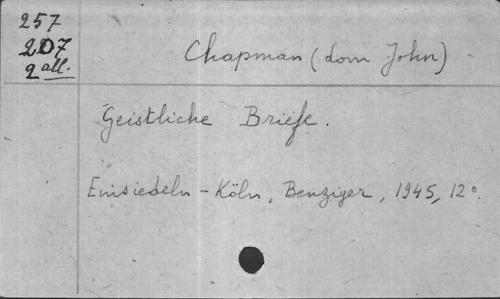 257
207
2 all.
Chapman (dom John)
Geistliche Briefe.
Einsiedeln - Köln, Benziger, 1945, 12°.